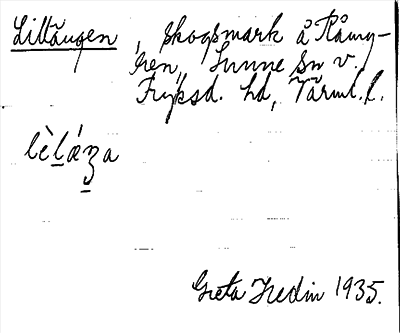 Lillängen, skogsmark å Rämy-
ren, Sunne sn v.
Fryksd. hd, Värml. l.
Greta Hedin 1935.